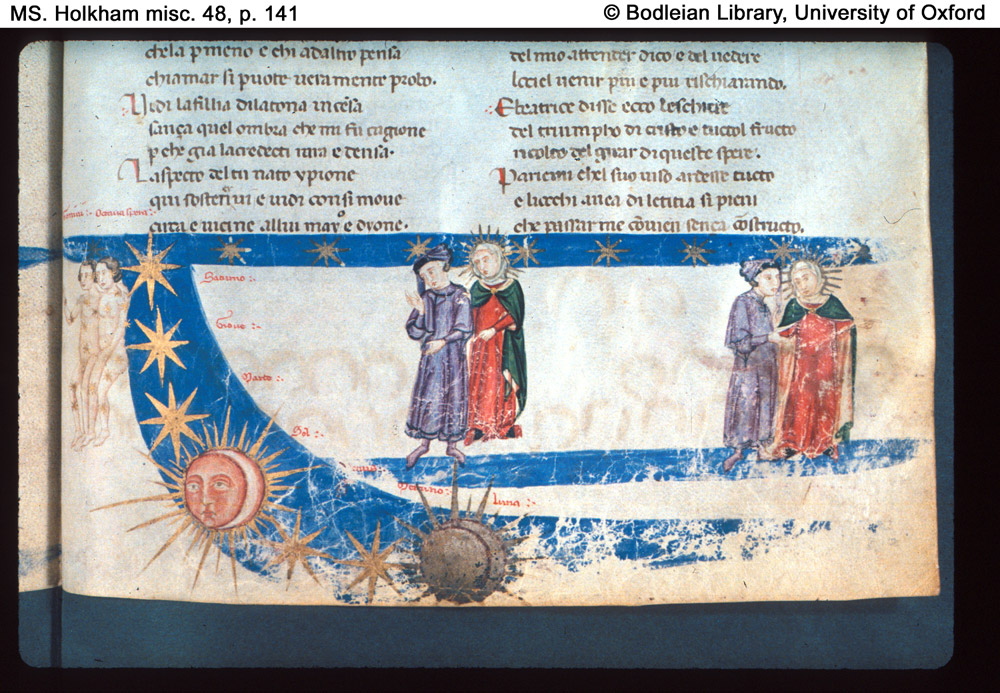 MS. Holkham misc. 48, p. 141
© Bodleian Library, University of Oxford
chela pmeno e chi adaltro pensa
chiamar si puote ueramente probo.
Vidi lafillia dilatona incesa
sança quel ombra che mi fu cagione
p che gia lacredecti rara e densa.
Laspecto del tu nato ypione
qui sostenni e uidi comsi moue
circa e uicine allui maya e dyone.
del mio attender dico e del uedere
lociel uenir piu e piu rischiarando.
E beatrice disse ecco leschiere
del triumpho di cristo e tuctol fructo
ricolto del girar di queste spere.
Pariemi chel suo uiso ardesse tucto
e liocchi auea di letitia si pieni
che passar me cōuien sença cōstructo.
Octaua spera:
Saturno:
Gioue:
Marte:
Sol:
Luna: